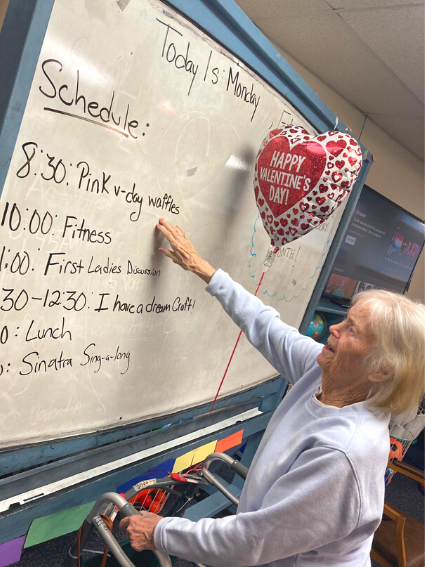 Today Is: Monday
Schedule:
8:30: Pink v-day waffles
10:00: Fitness
1:00: First Ladies Discussion
30-12:30: I have a dream Craft!
0: Lunch
0: Sinatra Sing-a-long
HAPPY
VALENTINE'S
DAY!